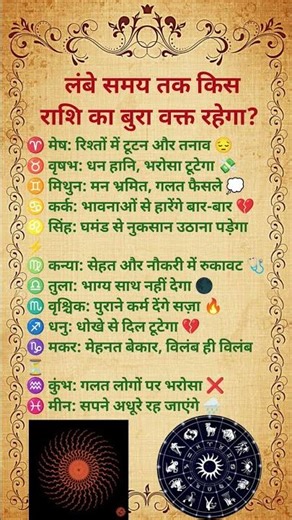 लंबे समय तक किस
राशि का बुरा वक्त रहेगा?
♈ मेष: रिश्तों में टूटन और तनाव 😔
♉ वृषभ: धन हानि, भरोसा टूटेगा 💸
♊ मिथुन: मन भ्रमित, गलत फैसले 💭
♋ कर्क: भावनाओं से हारेंगे बार-बार 💔
♌ सिंह: घमंड से नुकसान उठाना पड़ेगा
⚡
♍ कन्या: सेहत और नौकरी में रुकावट 🩺
♎ तुला: भाग्य साथ नहीं देगा 🌑
♏ वृश्चिक: पुराने कर्म देंगे सज़ा 🔥
♐ धनु: धोखे से दिल टूटेगा 💔
♑ मकर: मेहनत बेकार, विलंब ही विलंब
⏳
♒ कुंभ: गलत लोगों पर भरोसा ❌
♓ मीन: सपने अधूरे रह जाएंगे 🌧️